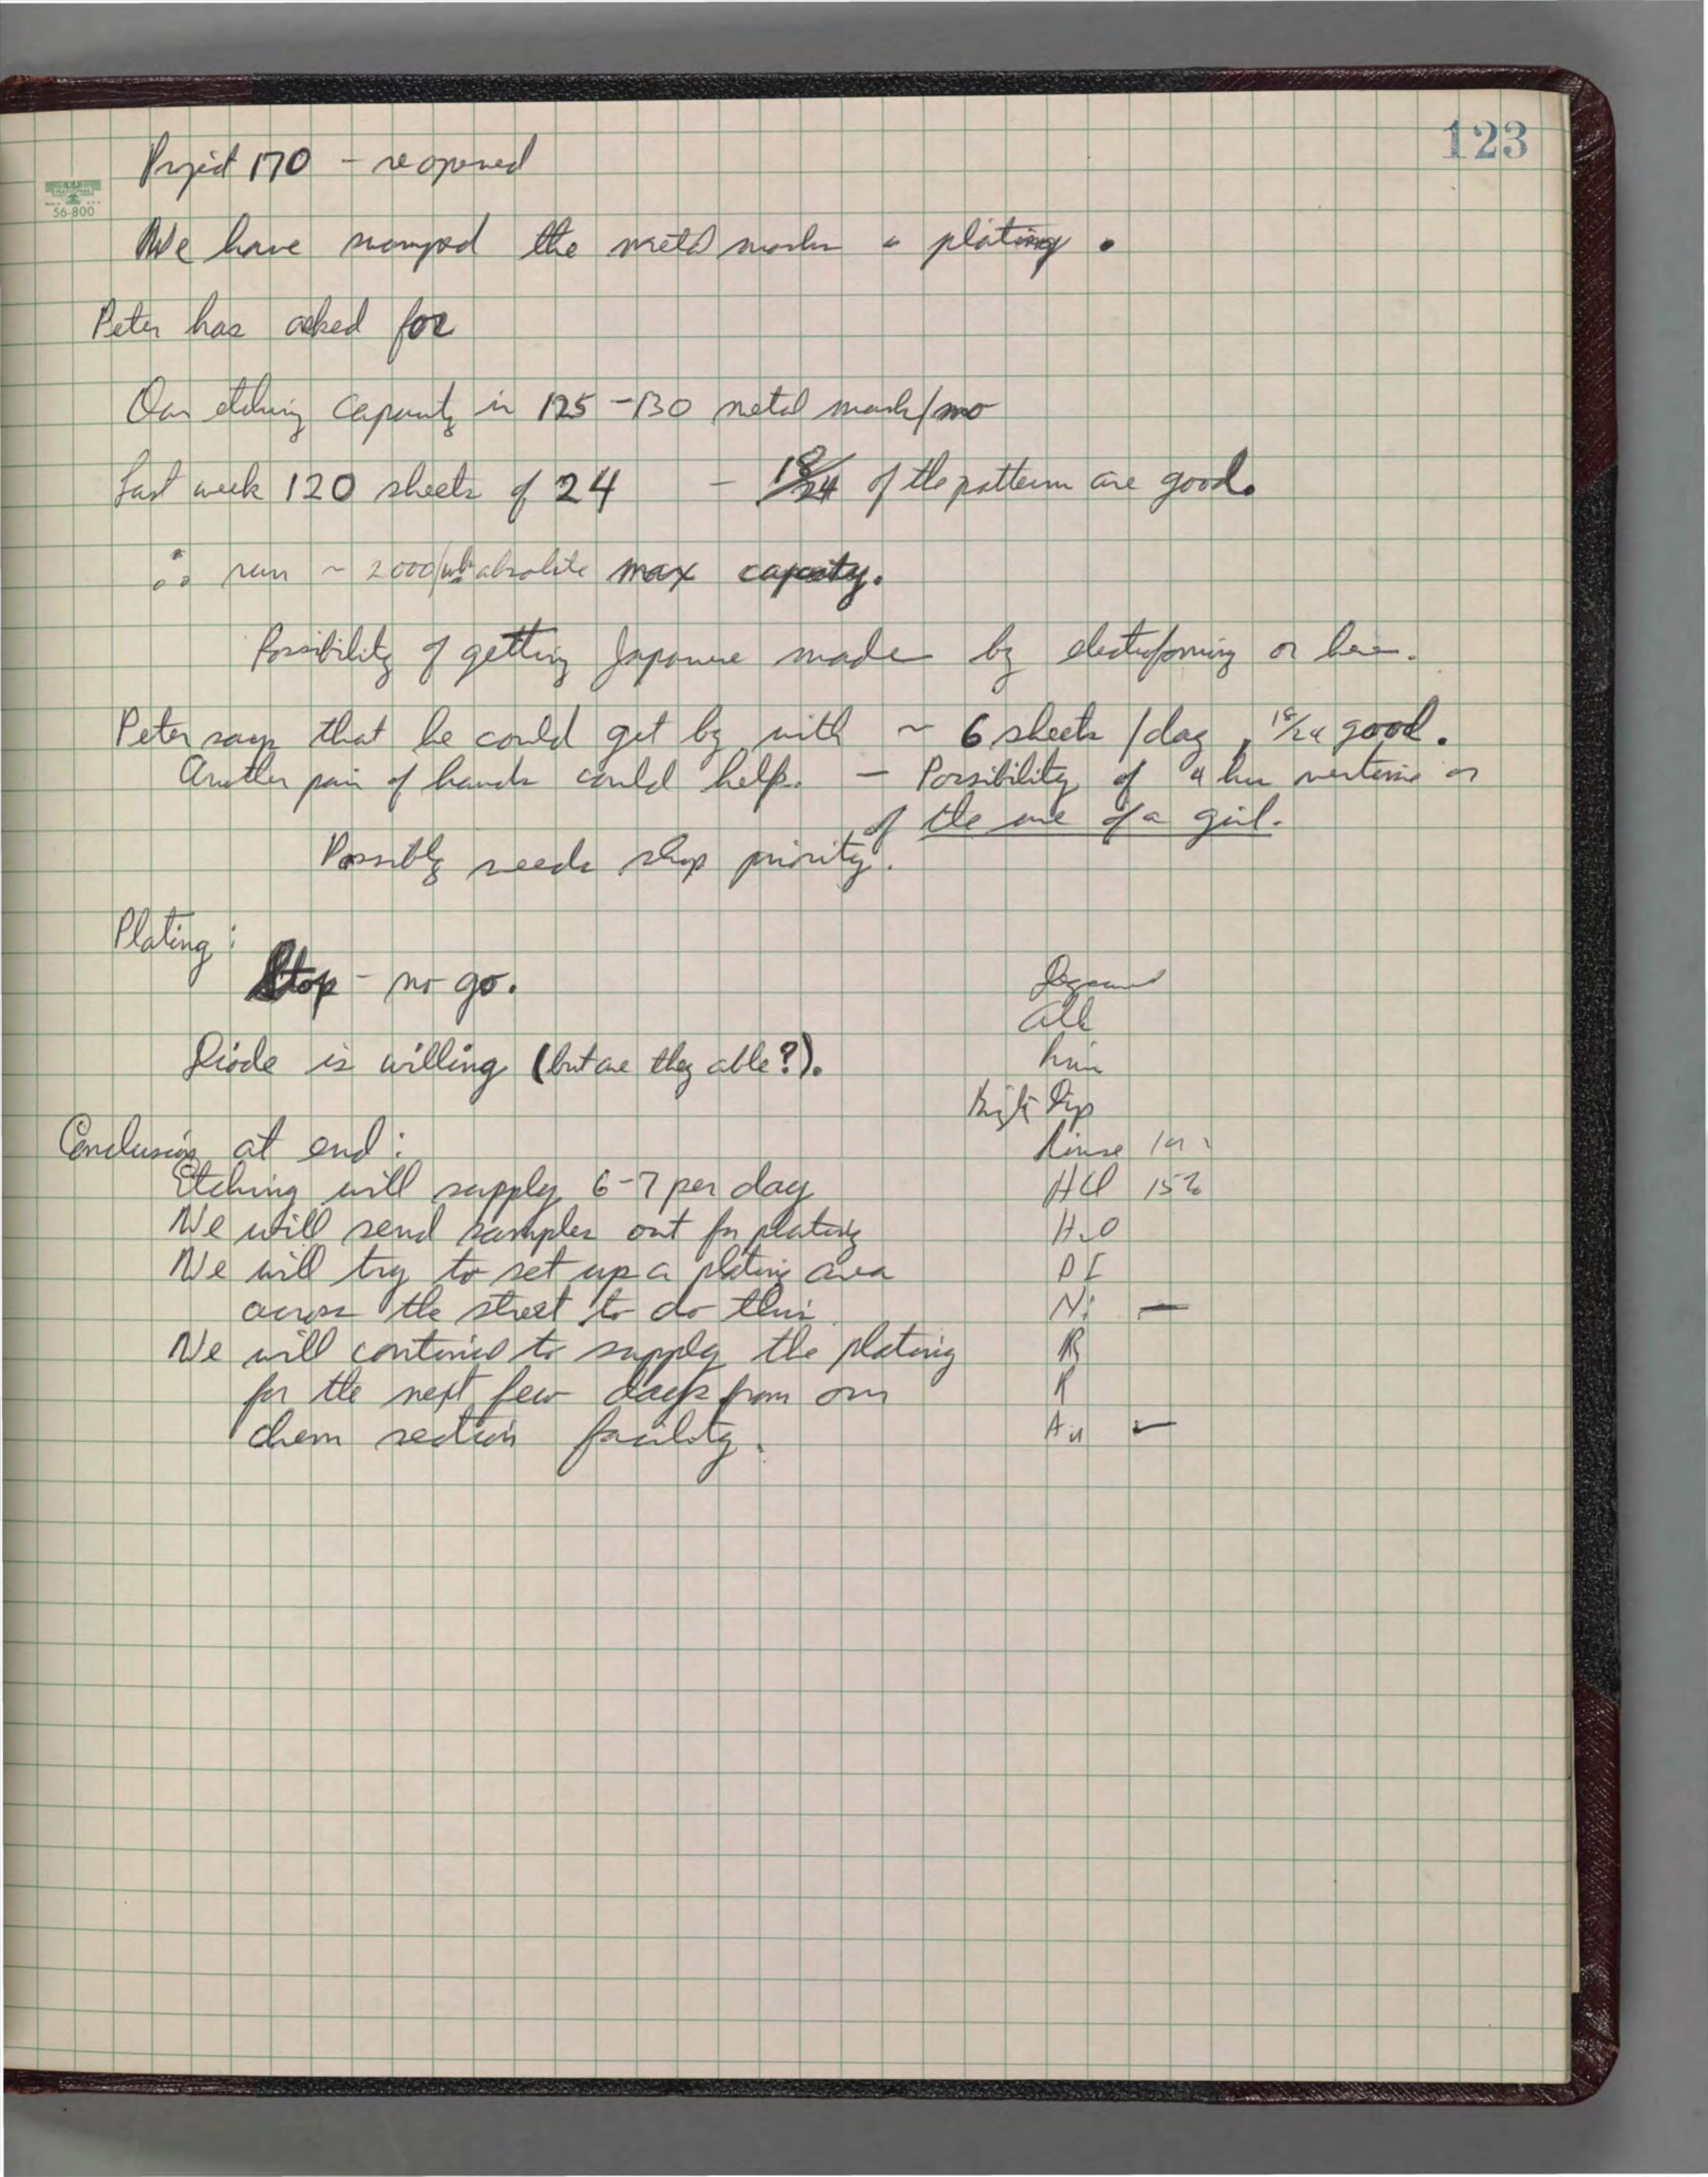 123
56-800
Project 170 – reopened
We have swamped the metal masks & plating.
Peter has asked for
Our etching capacity is 125-130 metal mask/mo
Last week 120 sheets of 24 – 18/24 of the pattern are good.
∴ run ~ 2000/wk absolute max capacity.
Possibility of getting Japanese made by electroforming or here.
Peter says that he could get by with ~ 6 sheets /day, 18/24 good.
Another pair of hands could help. – Possibility of 4 hrs overtime or
of the use of a girl.
Possibly needs shop priority.
Plating:
Stop – no go.
Diode is willing (but are they able?).
Conclusion at end:
Etching will supply 6-7 per day
We will send samples out for plating
We will try to set up a plating area
across the street to do this
We will continue to supply the plating
for the next few days from our
chem section facility.
Degrease
Alk
Rinse
Bright Dip
Rinse
HCl 15%
H2O
DI
Ni —
R
R
Au —